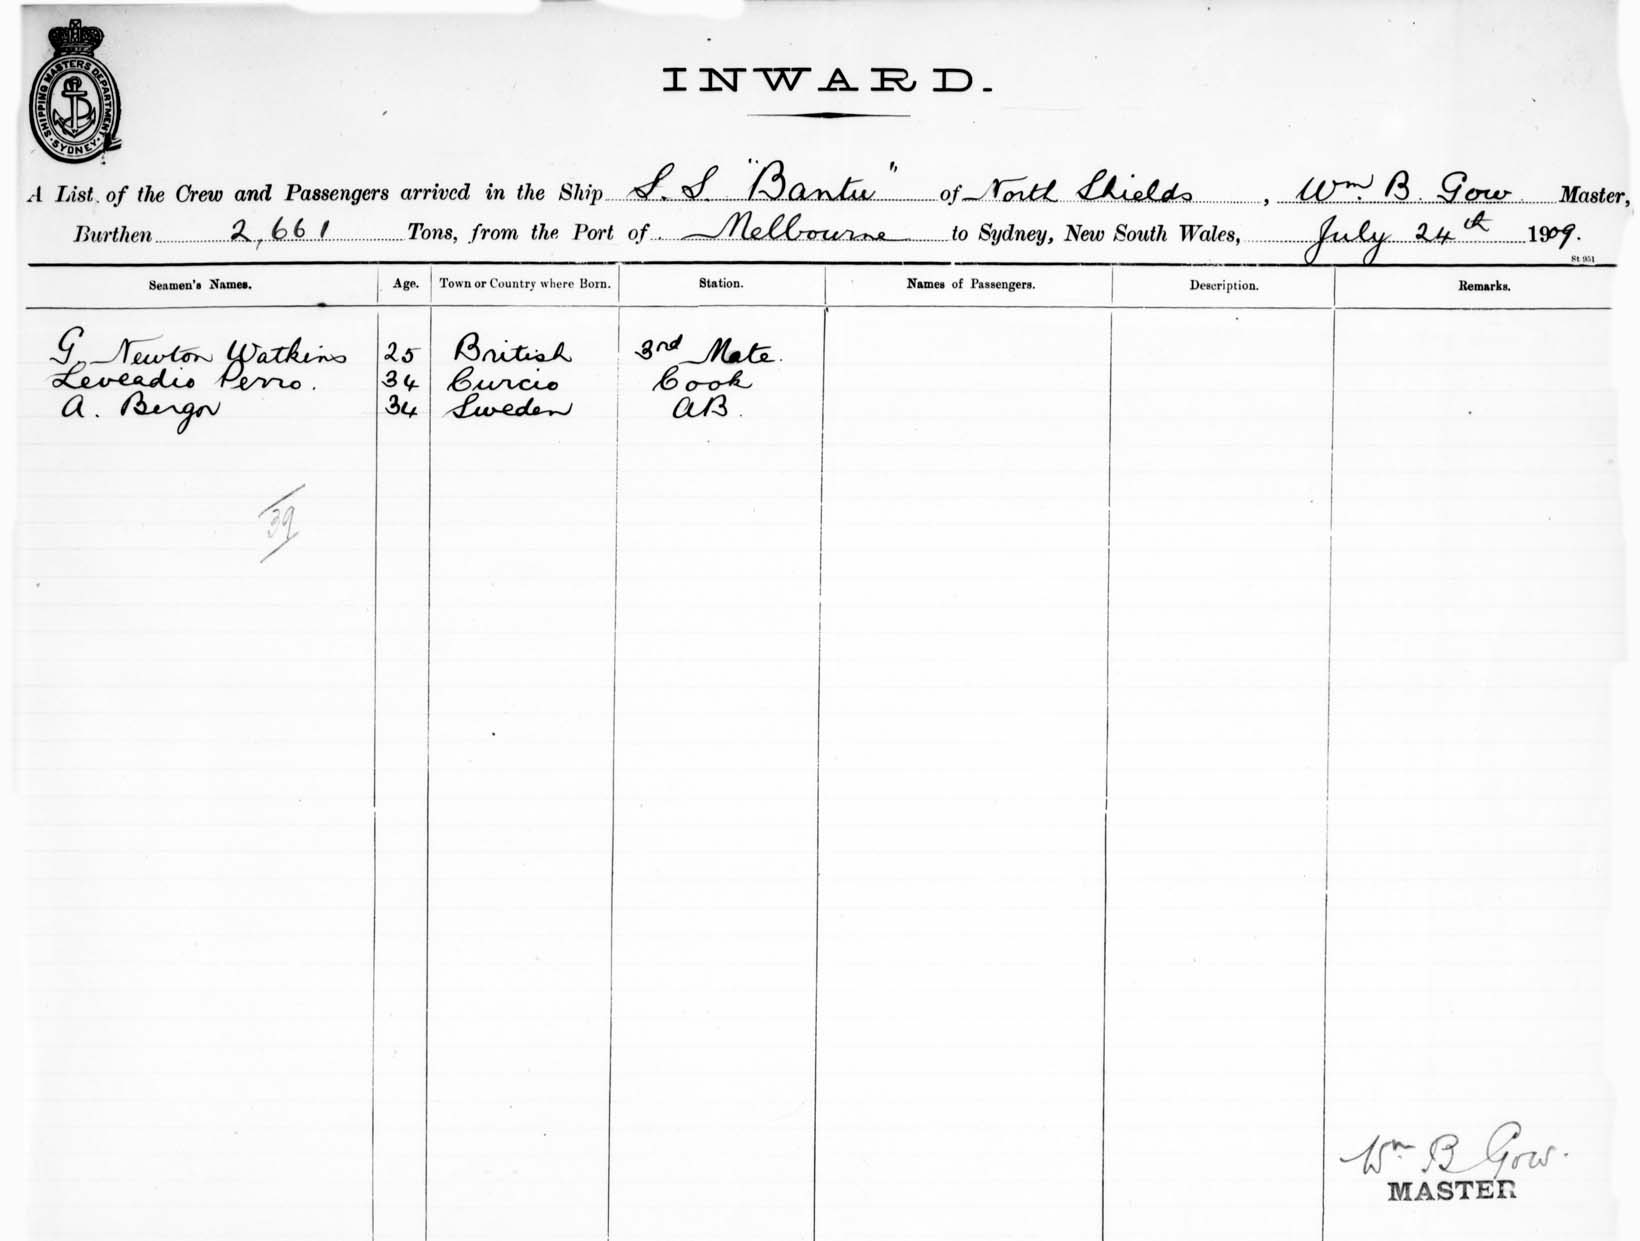 SHIPPING MASTERS DEPARTMENT SYDNEY
INWARD.
A List of the Crew and Passengers arrived in the Ship S. S. "Bantu" of North Shields, Wm. B. Gow Master,
Burthen 2,661 Tons, from the Port of Melbourne to Sydney, New South Wales, July 24th 1909.
St 951
Seamen's Names. Age. Town or Country where Born. Station. Names of Passengers. Description. Remarks.
G. Newton Watkins 25 British 3rd Mate.
Leveadio Perro. 34 Curcio Cook
A. Bergor 34 Sweden AB.
39
Wm B Gow.
MASTER